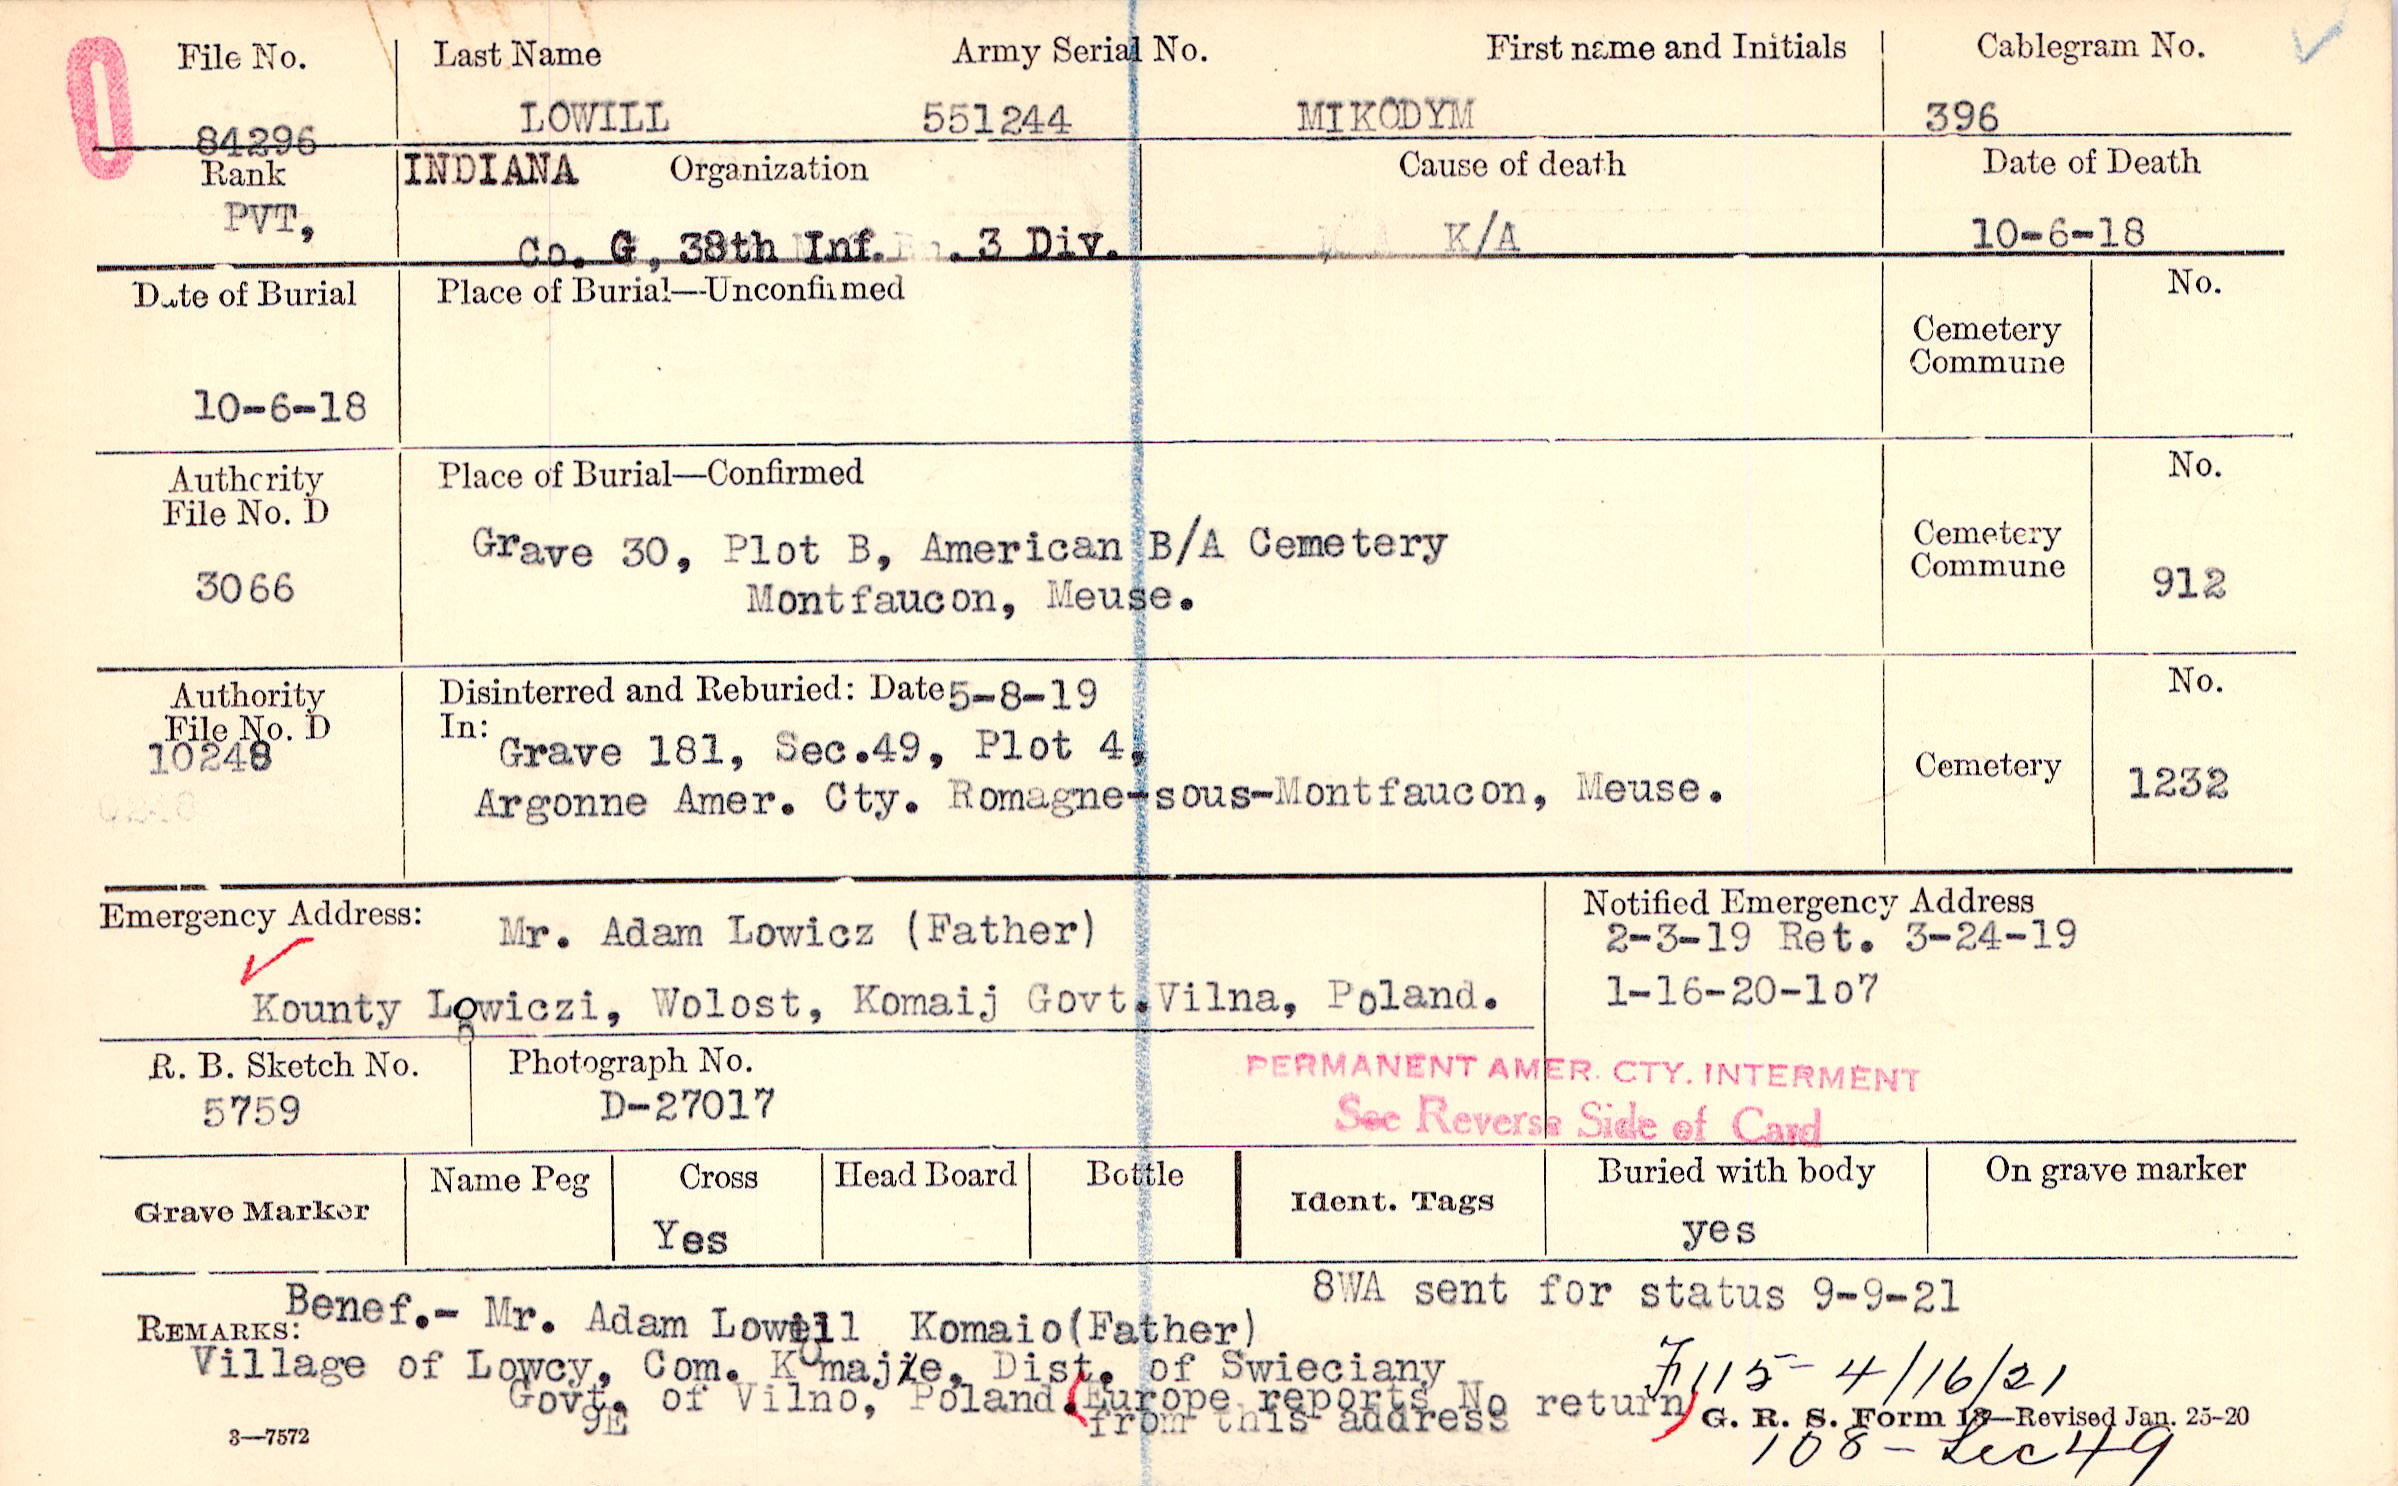 File No. Last Name Army Serial No. First name and Initials Cablegram No.
84296 LOWILL 551244 MIKODYM 396
Rank INDIANA Organization Cause of death Date of Death
PVT, Co. G, 38th Inf. . 3 Div. K/A 10-6-18
Date of Burial Place of Burial—Unconfirmed No.
Cemetery
Commune
10-6-18
Authority Place of Burial—Confirmed No.
File No. D
Grave 30, Plot B, American B/A Cemetery Cemetery
3066 Montfaucon, Meuse. Commune 912
Authority Disinterred and Reburied: Date 5-8-19 No.
File No. D In:
10248 Grave 181, Sec.49, Plot 4,
Argonne Amer. Cty. Romagne-sous-Montfaucon, Meuse. Cemetery 1232
Emergency Address: Mr. Adam Lowicz (Father) Notified Emergency Address
2-3-19 Ret. 3-24-19
Kounty Lowiczi, Wolost, Komaij Govt.Vilna, Poland. 1-16-20-1o7
R. B. Sketch No. Photograph No. PERMANENT AMER. CTY. INTERMENT
5759 D-27017 See Reverse Side of Card
Grave Marker Name Peg Cross Head Board Bottle Ident. Tags Buried with body On grave marker
Yes yes
8WA sent for status 9-9-21
REMARKS: Benef.- Mr. Adam Lowill Komaio(Father)
Village of Lowcy, Com. Komajie, Dist. of Swieciany F115- 4/16/21
Govt. of Vilno, Poland. (Europe reports No return
9E from this address)
3—7572 G. R. S. Form 13—Revised Jan. 25-20
108- Sec 49